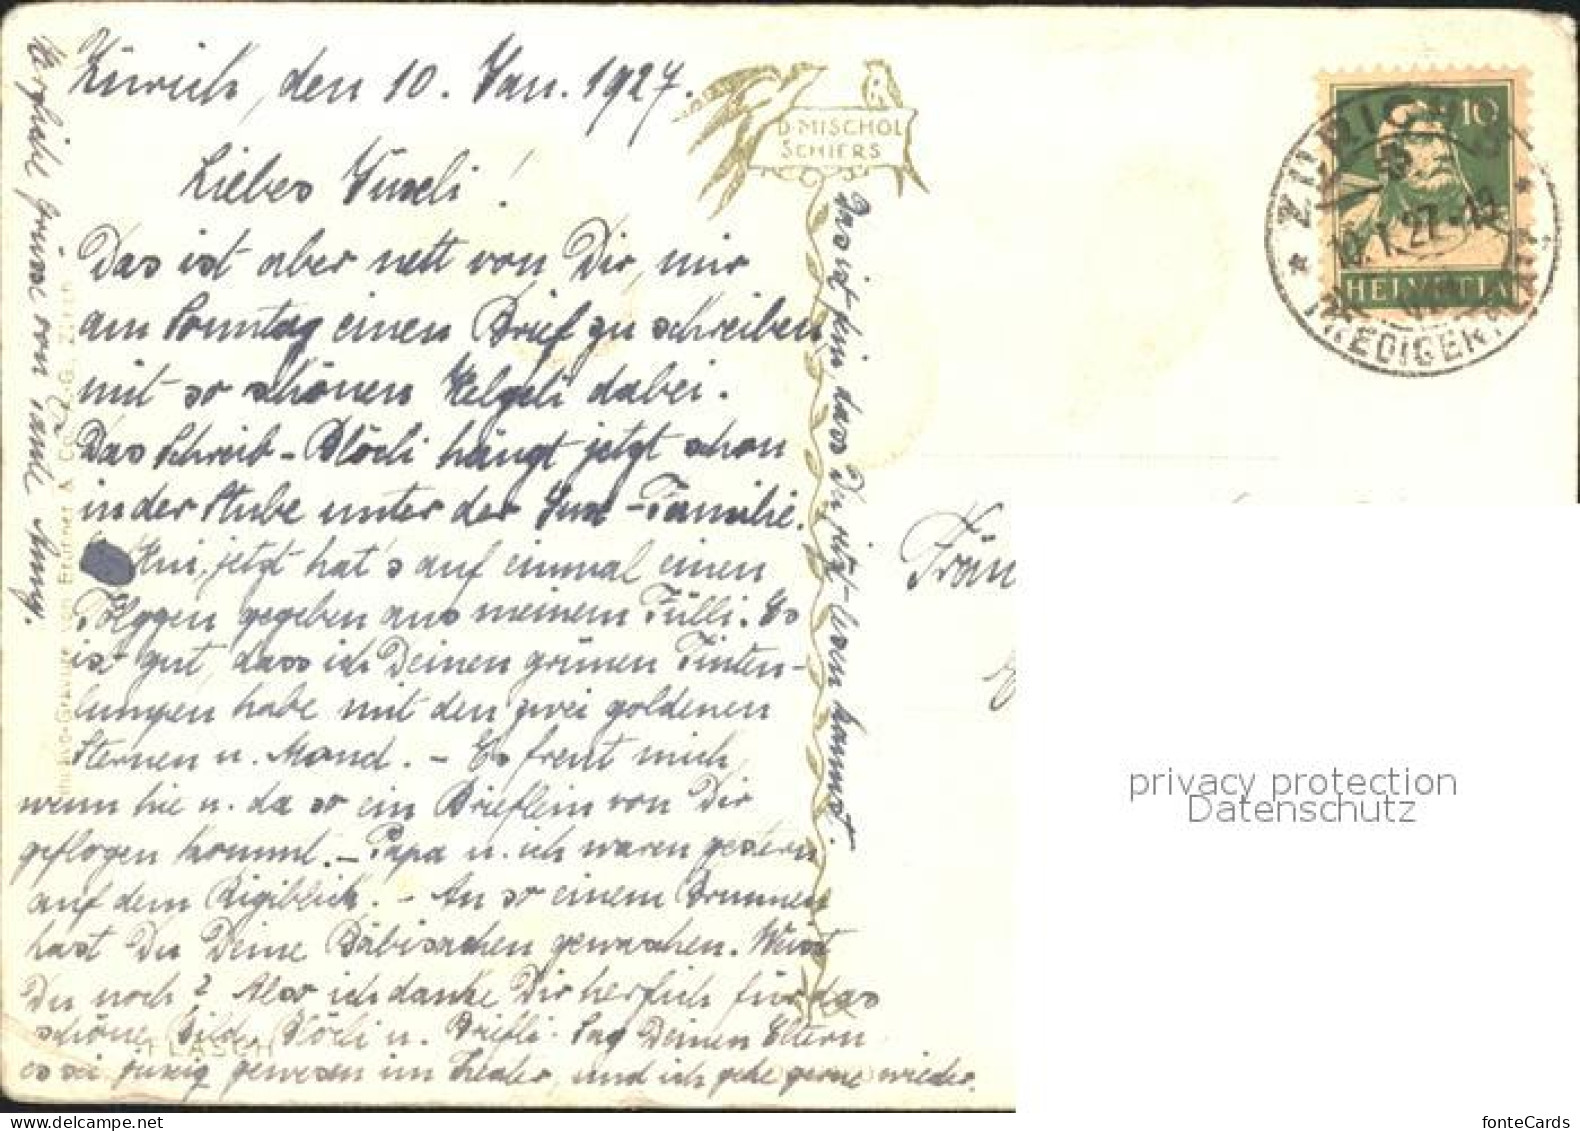 Zürich, den 10. Jan. 1927.
Liebes
Das ist aber nett von Dir, mir
am Sonntag einen Brief zu schreiben
mit so schönen Helgeli dabei.
Das Schreib-Blöcli hängt jetzt schon
in der Stube unter der -Familie.
jetzt hat's auf einmal einen
Tolggen gegeben aus meinem Fülli. Es
ist gut, dass ich Deinen grünen Tinten-
lumpen habe mit den zwei goldenen
Sternen u. Mond. - Es freut mich,
wenn hie u. da so ein Brieflein von Dir
geflogen kommt. - Papa u. ich waren gestern
auf dem Rigiblick. - An so einem Brunnen
hast Du Deine Bäbisachen gewaschen. Weisst
Du noch? Also ich danke Dir herzlich für das
schöne Bild, Blöcli u. Briefli. Sag Deinen Eltern
es sei gewesen im Theater, und ich gehe gerne wieder.
Herzliche Grüsse von Tante Anny.
Das ist fein, dass Du jetzt lesen kannst.
D. MISCHOL
SCHIERS
ZÜRICH
10.1.27.-19
PREDIGERPL
10
HELVETIA
Fräu
FLÄSCH
privacy protection
Datenschutz
fonteCards